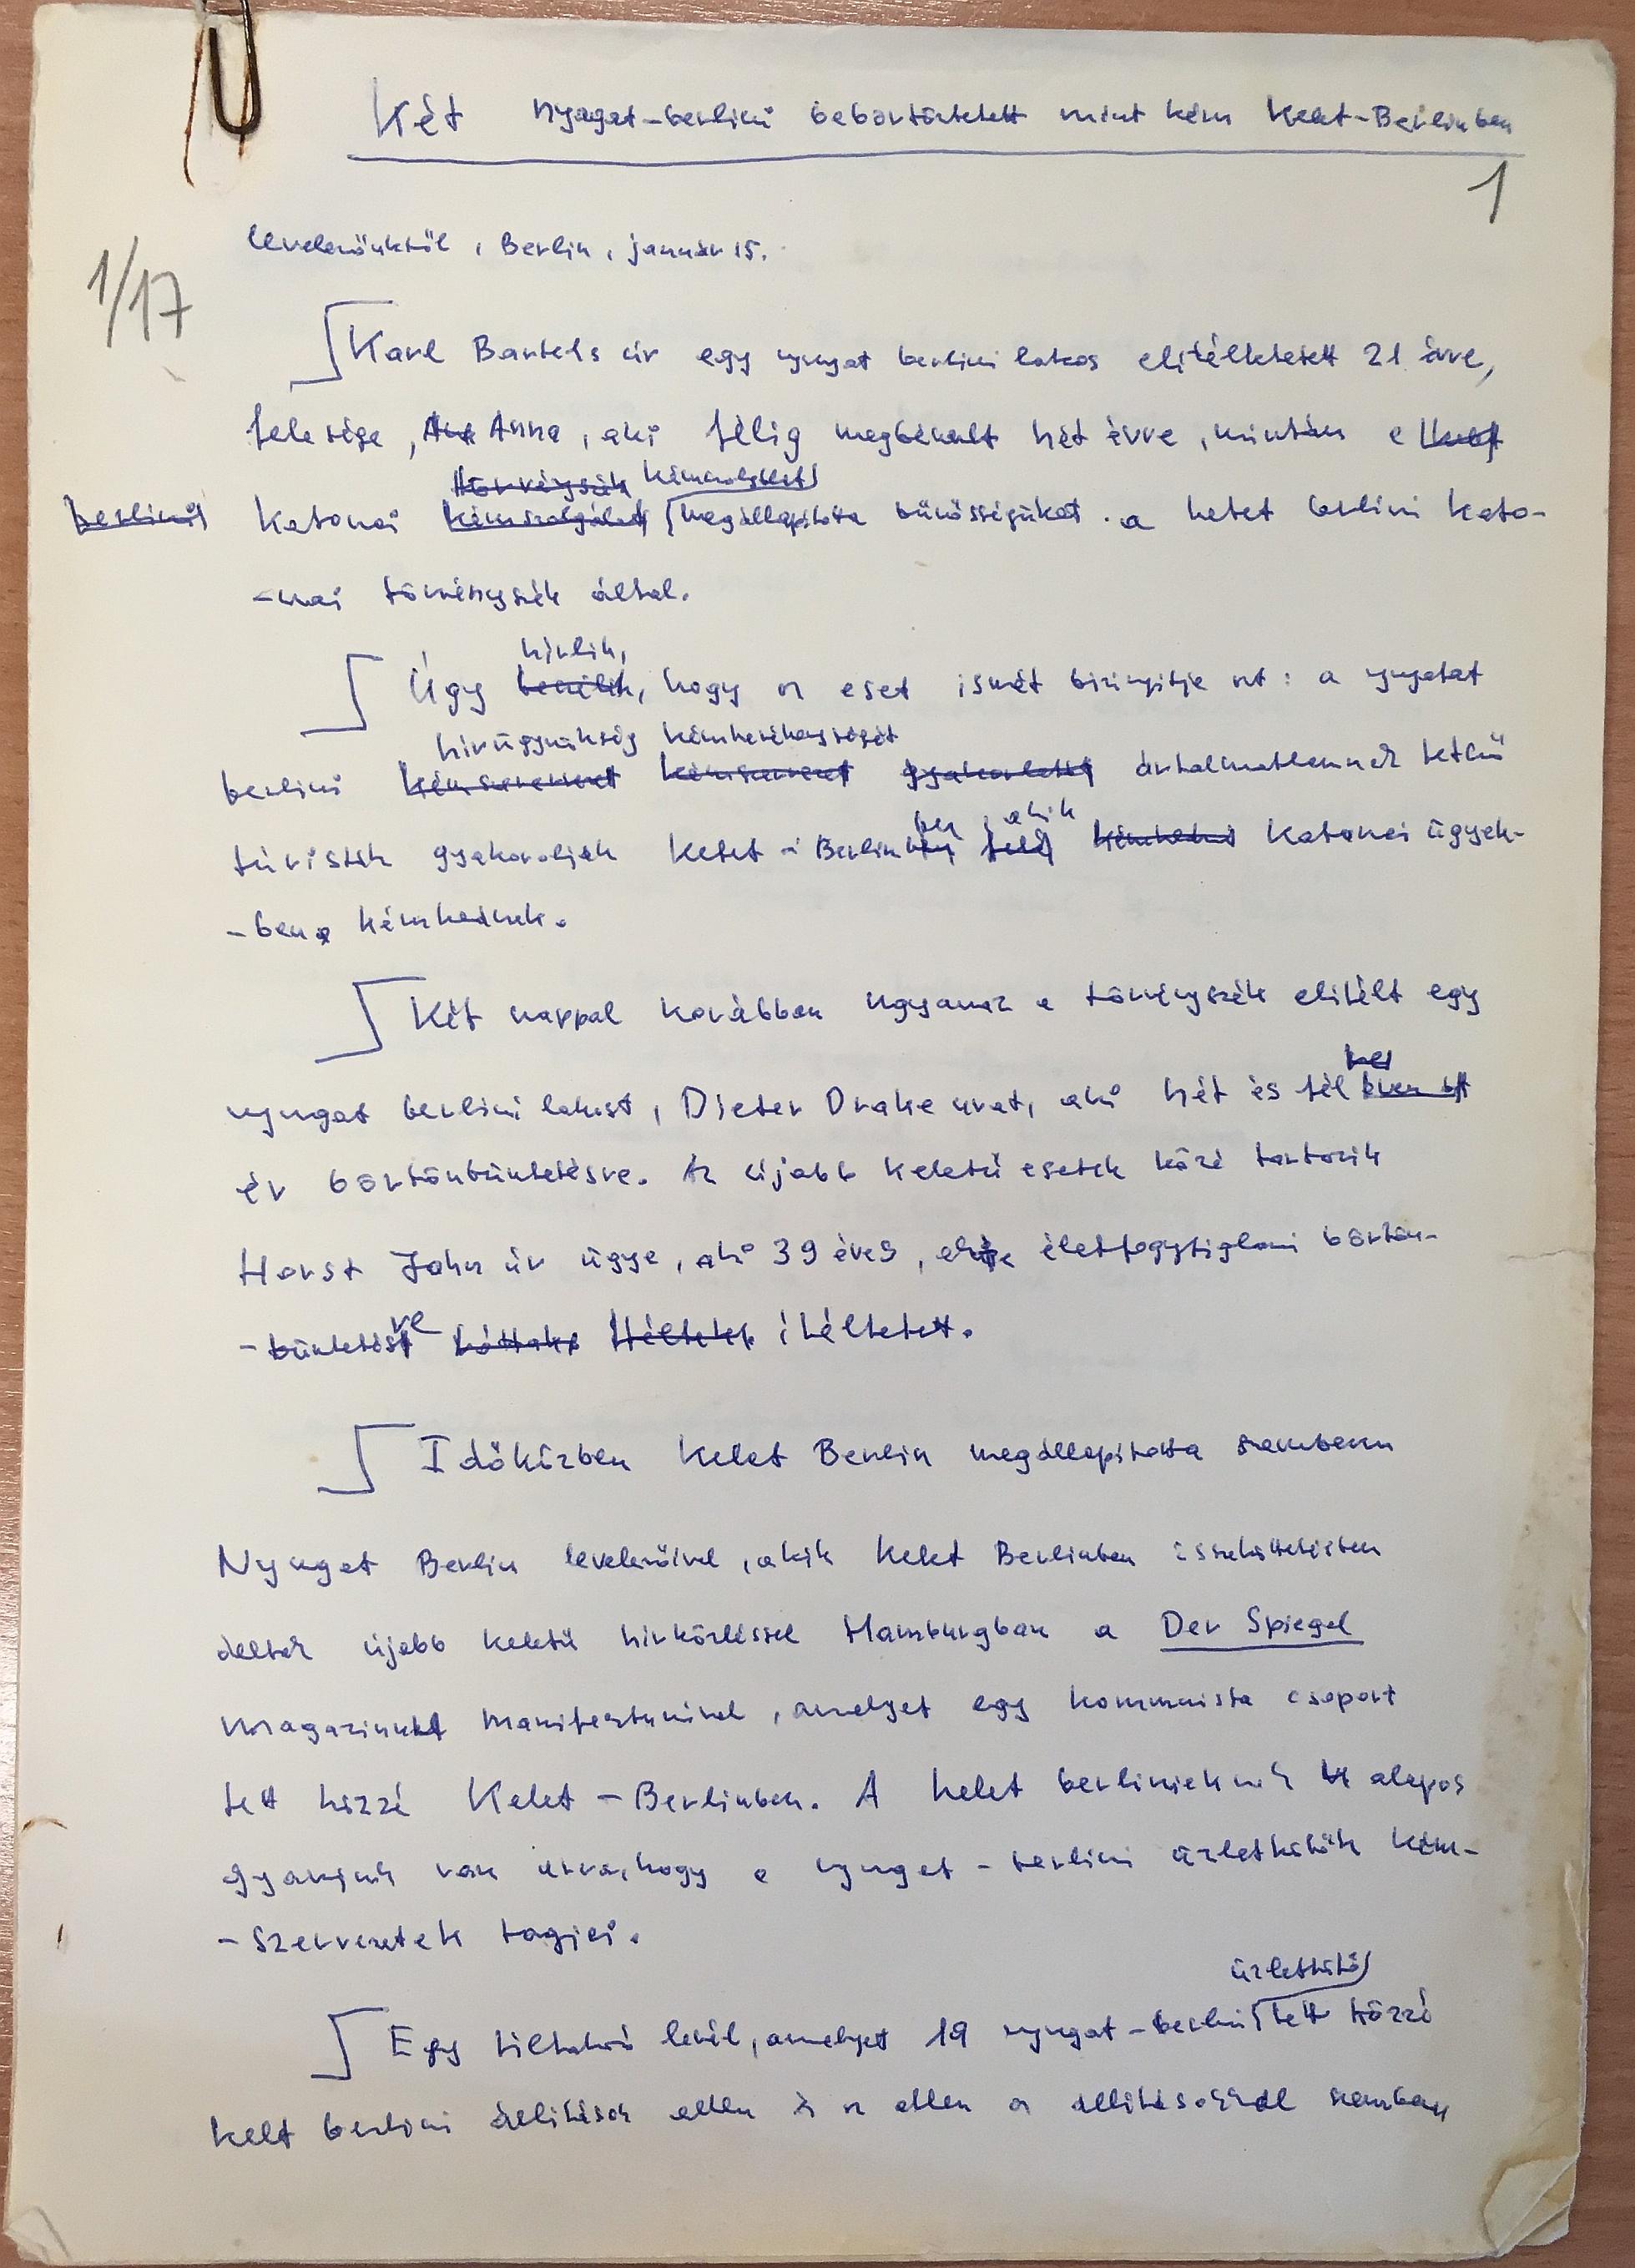 Két nyugat-berlini bebörtöntetett mint kém Kelet-Berlinben
1
1/17
levelezőnktől, Berlin, január 15.
Karl Bartels úr egy nyugat berlini lakos elitéltetett 21 évre,
felesége, Anna, aki félig megbénult hét évre, miután a
törvényszék kémszolgálat
berlini katonai kémszolgálat megállapította bűnösségüket a kelet berlini kato-
-nai törvényszék által.
hírlik,
Úgy hogy az eset ismét bizonyítja azt: a nyugat
hírügynökség kémtevékenységét
berlini kémszervezet kémszervezet gyakorlatú ártalmatlannak tetsző
ben, akik
turisták gyakorolják Kelet-Berlin felé katonai ügyek-
-ben kémkednek.
Két nappal korábban ugyanez a törvényszék elitélt egy
nyugat berlini lakost, Dieter Drake urat, aki hét és fél
év börtönbüntetésre. Az újabb keletű esetek közé tartozik
Horst John úr ügye, aki 39 éves, életfogytiglani börtön-
-büntetésre itéltetett.
Időközben Kelet Berlin megállapította szemben
Nyugat Berlin levelezőivel, akik Kelet Berlinben összeköttetésben
álltak újabb keletű hírközléssel Hamburgban a Der Spiegel
magazin manifesztumával, amelyet egy kommunista csoport
tett közzé Kelet-Berlinben. A kelet berlinieknek alapos
gyanújuk van arra, hogy a nyugat-berlini üzletkötők kém-
-szervezetek tagjai.
üzletkötő
Egy tiltakozó levél, amelyet 19 nyugat-berlini tett közzé
kelet berlini állítások ellen és az ellen az állításokkal szemben